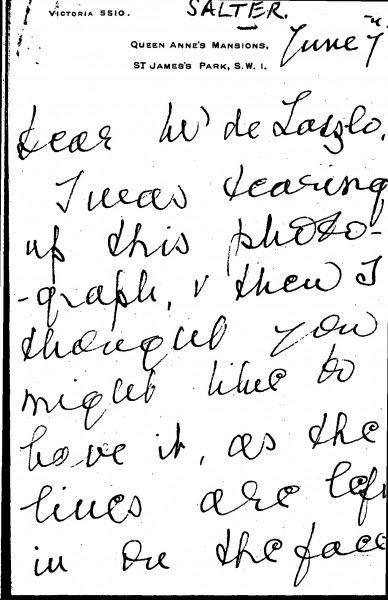 SALTER.
VICTORIA 5510.
QUEEN ANNE'S MANSIONS,
ST JAMES'S PARK, S.W.1.
June 7th
Dear Mr de Laszlo,
I was tearing
up this photo-
-graph, & then I
thought you
might like to
have it, as the
lines are left
in on the face